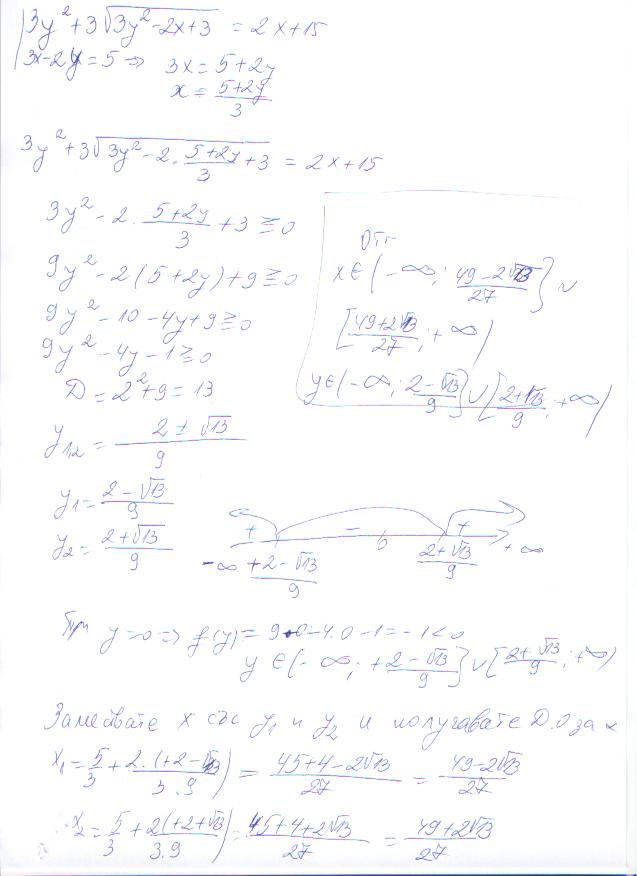 3y² + 3√(3y² - 2x + 3) = 2x + 15
3x - 2y = 5 => 3x = 5 + 2y
x = (5 + 2y)/3
3y² + 3√(3y² - 2·(5 + 2y)/3 + 3) = 2x + 15
3y² - 2·(5 + 2y)/3 + 3 ≥ 0
9y² - 2(5 + 2y) + 9 ≥ 0
9y² - 10 - 4y + 9 ≥ 0
9y² - 4y - 1 ≥ 0
D = 2² + 9 = 13
y₁,₂ = (2 ± √13)/9
y₁ = (2 - √13)/9
y₂ = (2 + √13)/9
Отг
x ∈ (-∞; (49 - 2√13)/27] ∪
[(49 + 2√13)/27; +∞)
y ∈ (-∞; (2 - √13)/9] ∪ [(2 + √13)/9; +∞)
+ - +
-∞ (+2 - √13)/9 0 (2 + √13)/9 +∞
При y = 0 => f(y) = 9·0 - 4·0 - 1 = -1 < 0
y ∈ (-∞; (+2 - √13)/9] ∪ [(2 + √13)/9; +∞)
Замествате x със y₁ и y₂ и получавате Д.О за x
x₁ = 5/3 + 2·(+2 - √13)/(3·9) = (45 + 4 - 2√13)/27 = (49 - 2√13)/27
x₂ = 5/3 + 2(+2 + √13)/(3·9) = (45 + 4 + 2√13)/27 = (49 + 2√13)/27